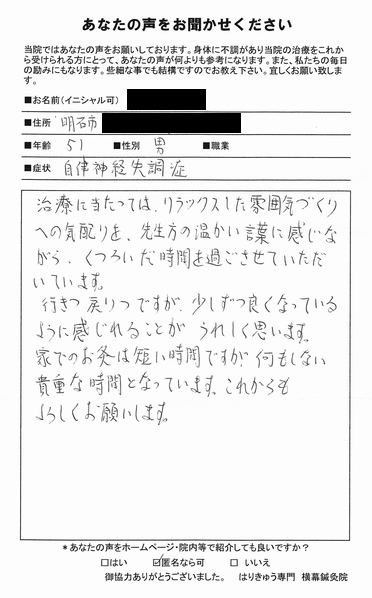 あなたの声をお聞かせください
当院ではあなたの声をお願いしております。身体に不調があり当院の治療をこれか
ら受けられる方にとって、あなたの声が何よりも参考になります。また、私たちの毎日
の励みにもなります。些細な事でも結構ですのでお教え下さい。宜しくお願い致しま
す。
■お名前(イニシャル可)
■住所 明石市
■年齢 51 ■性別 男 ■職業
■症状 自律神経失調症
治療に当たっては、リラックスした雰囲気づくり
への気配りを、先生方の温かい言葉に感じな
がら、くつろいだ時間を過ごさせていただ
いています。
行きつ戻りつですが、少しずつ良くなっている
ように感じれることが うれしく思います。
家でのお灸は短い時間ですが 何もしない
貴重な時間となっています。これからも
よろしくお願いします。
*あなたの声をホームページ・院内等で紹介しても良いですか?
□はい ☑匿名なら可 □ いいえ
御協力ありがとうございました。 はりきゅう専門 横幕鍼灸院